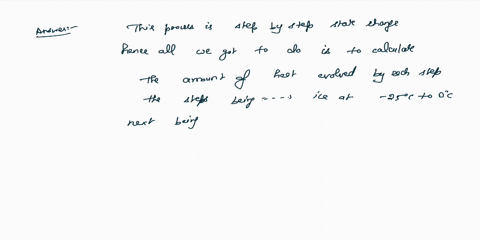 Answer:- This process is step by step state change
hence all we got to do is to calculate
the amount of heat evolved by each step
the steps being ----› ice at -25°c to 0°c
next being